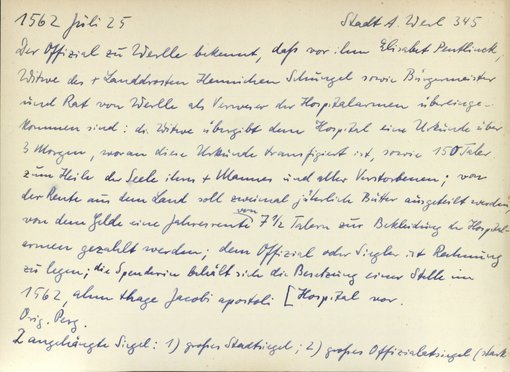 1562 Juli 25 Stadt A. Werl 345
Der Offizial zu Werlle bekennt, daß vor ihm Elisabet Pentlinck,
Witwe des + Landdrosten Hennichen Schüngel sowie Bürgermeister
und Rat von Werlle als Verweser der Hospitalarmen übereinge-
kommen sind: die Witwe übergibt dem Hospital eine Urkunde über
3 Morgen, woran diese Urkunde transfigiert ist, sowie 150 Taler
zum Heile der Seele ihres + Mannes und aller Verstorbenen; von
der Rente aus dem Land soll zweimal jährlich Butter ausgeteilt werden,
von dem Gelde eine Jahresrente von 7 1/2 Talern zur Bekleidung der Hospital-
armen gezahlt werden; dem Offizial oder Siegler ist Rechnung
zu legen; die Spenderin behält sich die Besetzung einer Stelle im
1562, ahm thage Jacobi apostoli [Hospital vor.
Orig. Perg.
2 angehängte Siegel: 1) großes Stadtsiegel; 2) großes Offizialatsiegel (stark